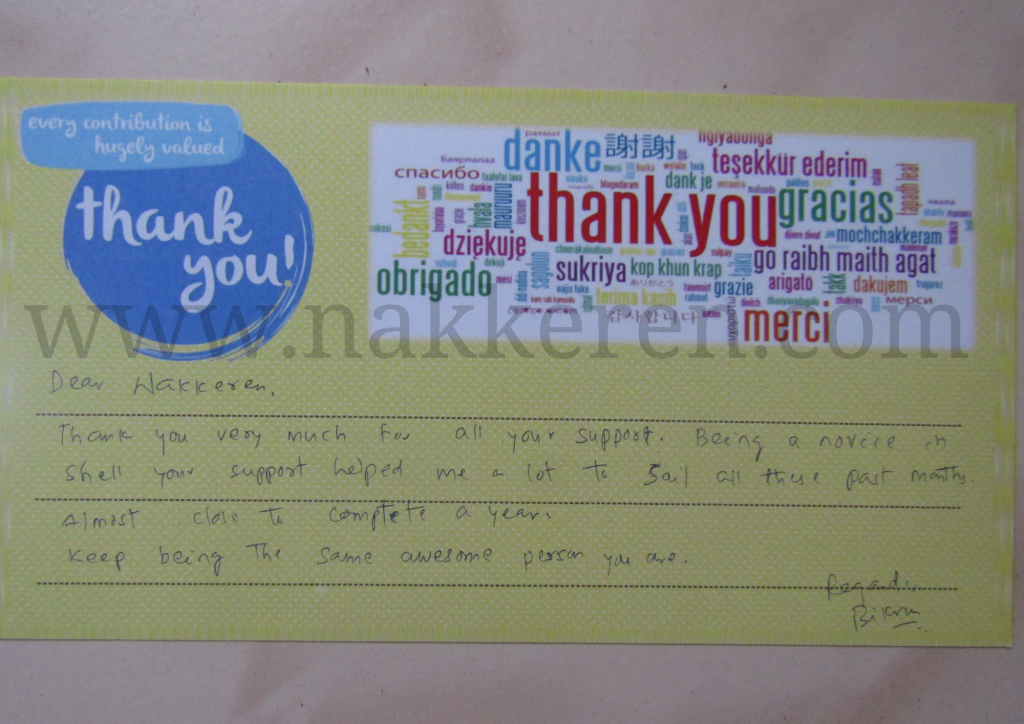 every contribution is
hugely valued
thank
you!
рахмат
ngiyabonga
danke 謝謝
teşekkür ederim
Баярлалаа
спасибо
dank je
gracias
thank you
bedankt
hvala
mauruuru
tapadh leat
dziękuje
mochchakkeram
go raibh maith agat
obrigado
sagolun
sukriya kop khun krap
arigato
takk
dakujem
terima kasih
grazie
merci
мерси
감사합니다
www.nakkeren.com
Dear Nakkeren,
Thank you very much for all your support. Being a novice in
Shell your support helped me a lot to Sail all these past months.
Almost close to complete a year.
Keep being The same awesome person you are.
Regards
Bikram